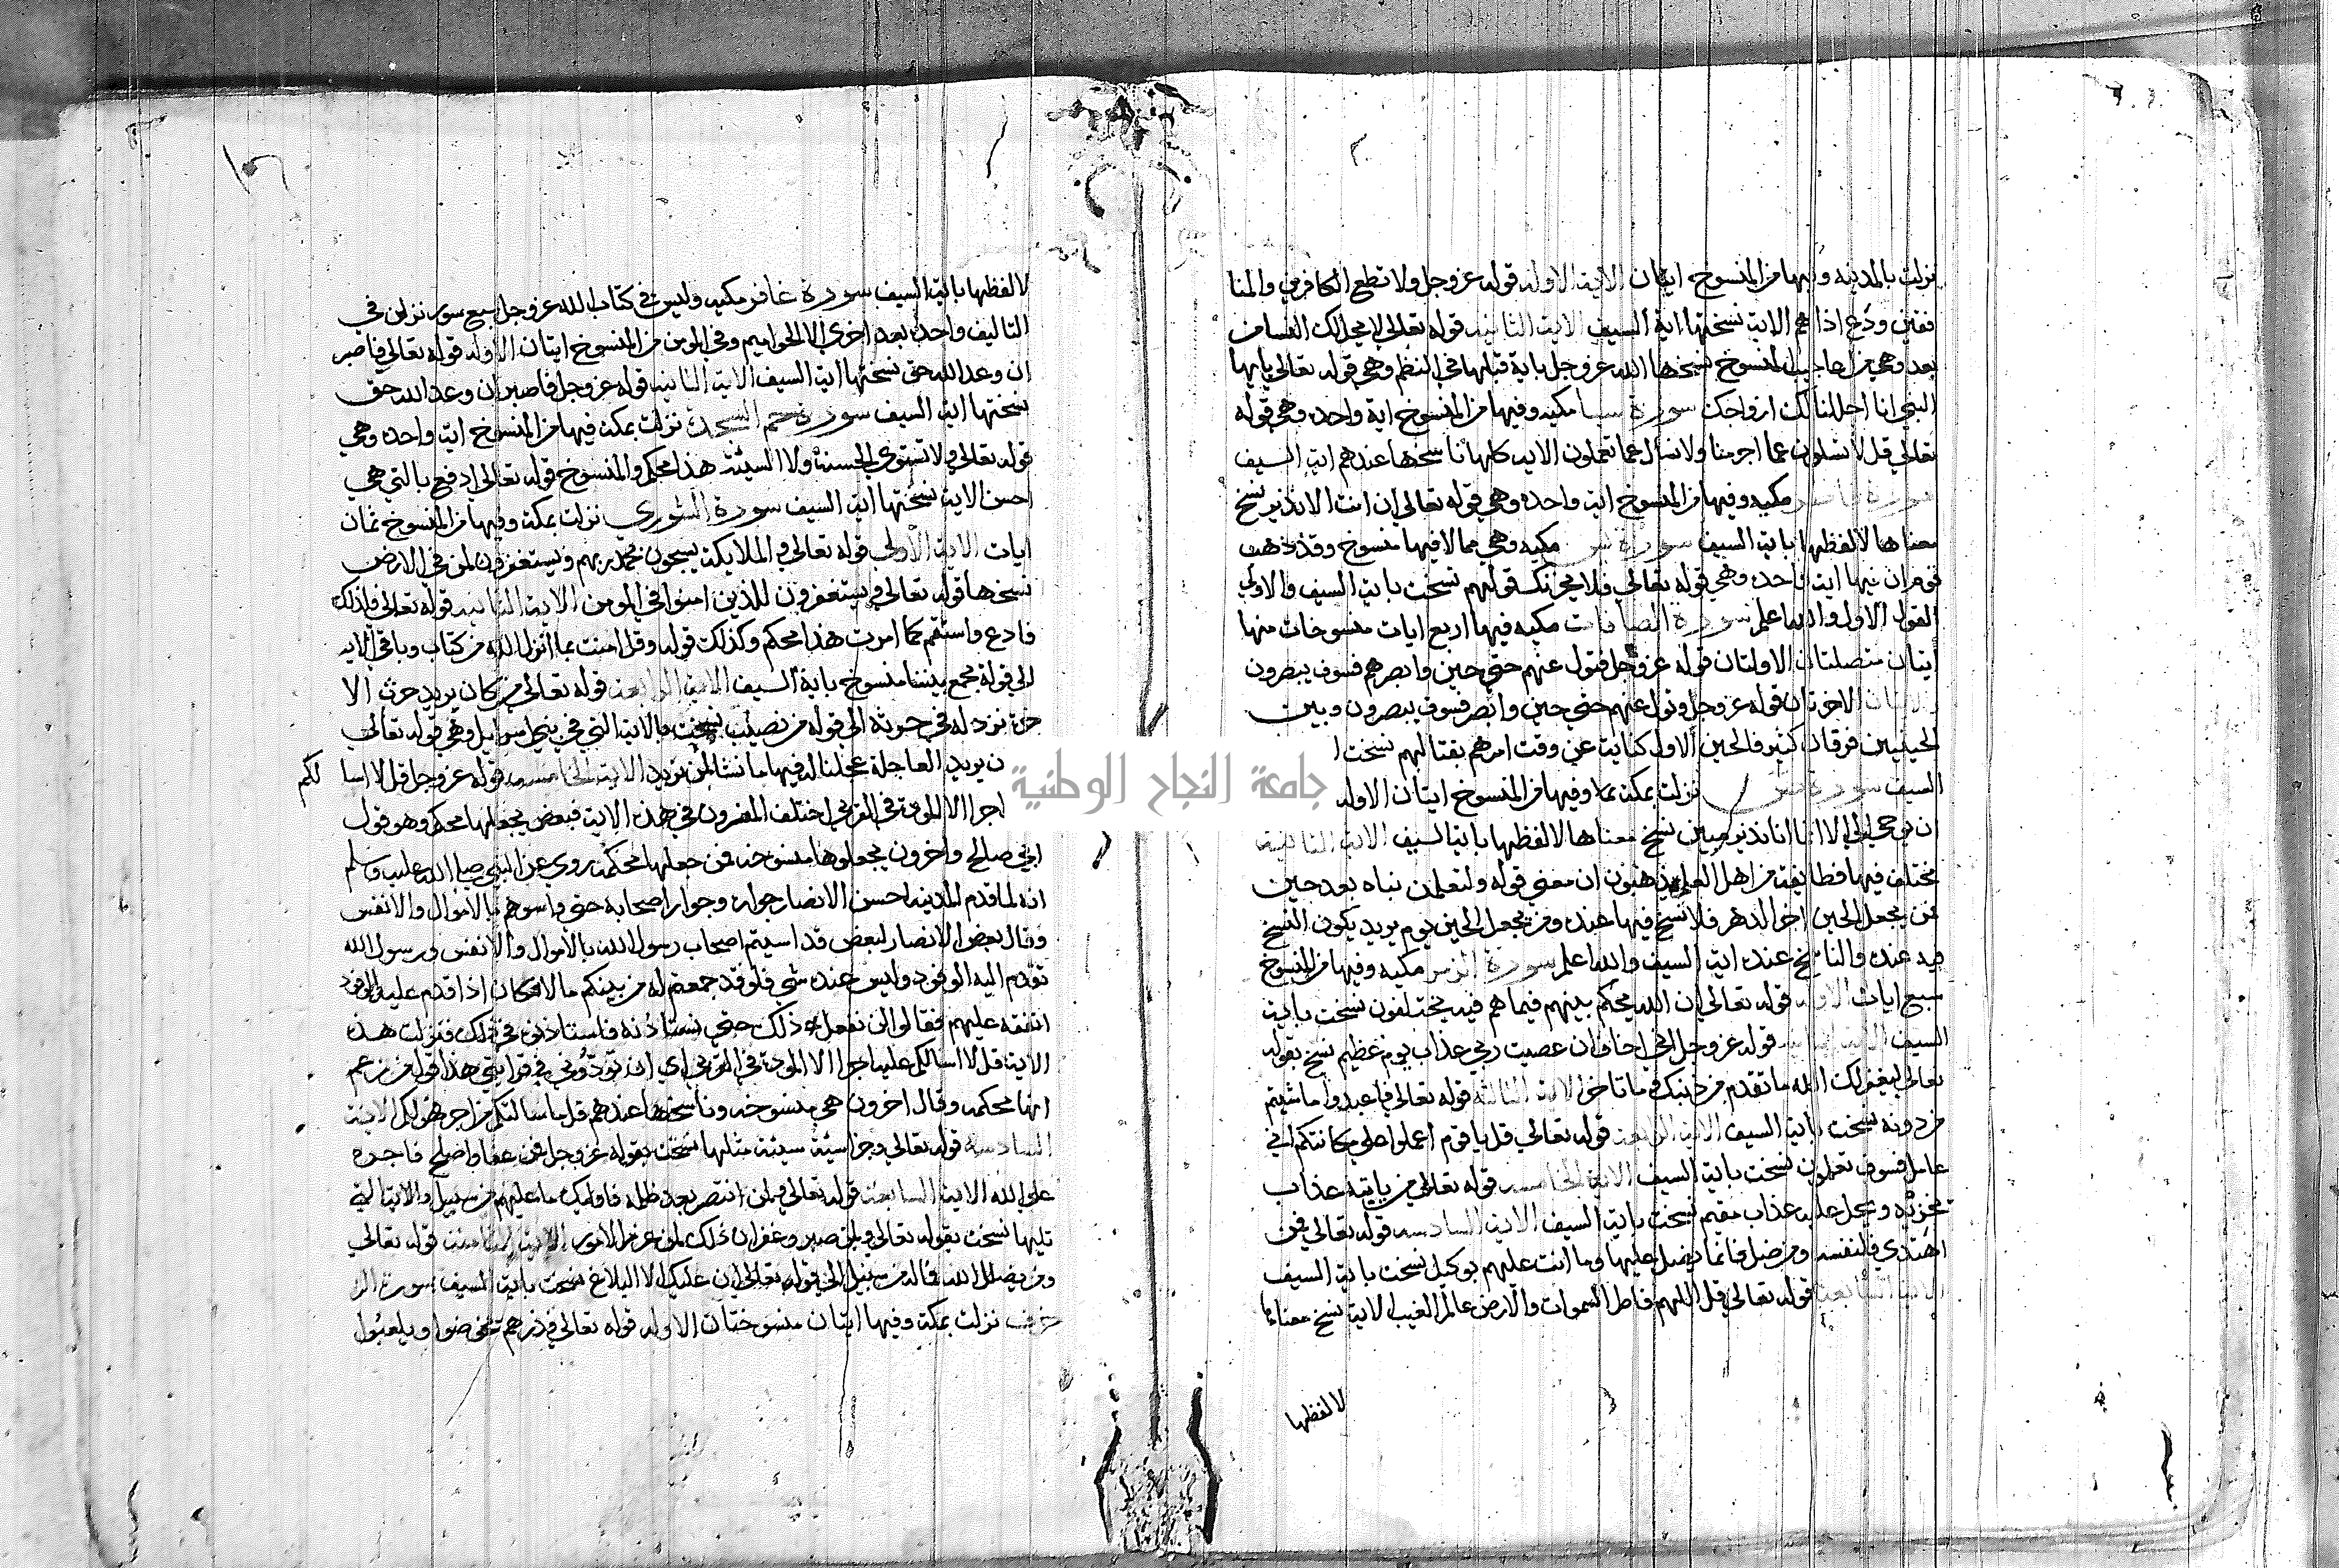 نزلت بالمدينه وفيها من المنسوخ ايتان الاية الاوله قوله عز وجل ولا تطع الكافرين والمنا
فقين ودع اذاهم الاية نسختها اية السيف الاية الثانيه قوله تعالي لا يحل لك النسا من
بعد وهي من اعاجيب المنسوخ نسخها الله عز وجل باية قبلها في النظم وهي قوله تعالي يايها
النبي انا احللنا لك ازواجك سورة سبا مكيه وفيها من المنسوخ اية واحده وهي قوله
تعالي قل لا تسلون عما اجرمنا ولا نسال عما تعملون الايه كلها ناسخها عندهم اية السيف
سورة فاطر مكيه وفيها من المنسوخ اية واحده وهي قوله تعالي ان انت الا نذير نسخ
معناها لا لفظها باية السيف سورة يس مكيه وهي مما لا فيها منسوخ وقد ذهب
قوم ان فيها اية واحده وهي قوله تعالي فلا يحزنك قولهم نسخت باية السيف والاولي
القول الاول والله اعلم سورة الصافات مكيه فيها اربع ايات منسوخات منها
ايتان متصلتان الاولتان قوله عز وجل فتول عنهم حتي حين وابصرهم فسوف يبصرون
والايتان الاخرتان قوله عز وجل وتول عنهم حتي حين وابصر فسوف يبصرون وبين
الحينين فرقان كثير فالحين الاول كناية عن وقت امرهم بقتالهم نسخت ا
السيف سورة ص نزلت بمكة وفيها من المنسوخ ايتان الاوله
ان يوحي الي الا انما انا نذير مبين نسخ معناها لا لفظها باية السيف الاية الثانية
مختلف فيها فطايفة من اهل العلم يذهبون ان معني قوله ولتعلمن نباه بعد حين
فمن يجعل الحين اخر الدهر فلا نسخ فيها عنده ومن يجعل الحين يوم يريد يكون النسخ
فيه عنده والناسخ عنده اية السيف والله اعلم سورة الزمر مكيه وفيها من المنسوخ
سبع ايات الاوله قوله تعالي ان الله يحكم بينهم فيما هم فيه يختلفون نسخت باية
السيف الاية الثانيه قوله عز وجل اني اخاف ان عصيت ربي عذاب يوم عظيم نسخ بقوله
تعالي ليغفر لك الله ما تقدم من ذنبك وما تاخر الاية الثالثة قوله تعالي فاعبدوا ما شيتم
من دونه نسخت باية السيف الاية الرابعة قوله تعالي قل يا قوم اعملوا علي مكانتكم اني
عامل فسوف تعلمون نسخت باية السيف الاية الخامسه قوله تعالي من ياتيه عذاب
يخزيه ويحل عليه عذاب مقيم نسخت باية السيف الاية السادسه قوله تعالي فمن
اهتدي فلنفسه ومن ضل فانما يضل عليها وما انت عليهم بوكيل نسخت باية السيف
الاية السابعة قوله تعالي قل اللهم فاطر السموات والارض عالم الغيب الاية نسخ معناها
لا لفظها
لا لفظها باية السيف سورة غافر مكيه وليس في كتاب الله عز وجل سبع سور نزلن في
التاليف واحدة بعد اخري الا الحواميم وفي المومن من المنسوخ ايتان الاوله قوله تعالي فاصبر
ان وعد الله حق نسختها اية السيف الاية الثانيه قوله عز وجل فاصبر ان وعد الله حق
نسختها اية السيف سورة حم السجدة نزلت بمكة فيها من المنسوخ اية واحده وهي
قوله تعالي ولا تستوي الحسنة ولا السيئة هذا محكم والمنسوخ قوله تعالي ادفع بالتي هي
احسن الاية نسختها اية السيف سورة الشوري نزلت بمكة وفيها من المنسوخ ثمان
ايات الاية الاولي قوله تعالي والملايكة يسبحون بحمد ربهم ويستغفرون لمن في الارض
نسخها قوله تعالي ويستغفرون للذين امنوا في المومن الاية الثانيه قوله تعالي فلذلك
فادع واستقم كما امرت هذا محكم وكذلك قوله وقل امنت بما انزل الله من كتاب وباقي الايه
الي قوله يجمع بيننا منسوخ باية السيف الاية الرابعة قوله تعالي من كان يريد حرث الا
خرة نزد له في حرثه الي قوله من نصيب نسخت بالاية التي في بني اسرايل وهي قوله تعالي
ن يريد العاجلة عجلنا له فيها ما نشا لمن نريد الاية الخامسه قوله عز وجل قل لا اسا لكم
جامعة النجاح الوطنية
اجرا الا المودة في القربي اختلف المفسرون في هذه الاية فبعض يجعلها محكمه وهو قول
ابي صالح واخرون يجعلوها منسوخه فمن جعلها محكمة روي عن النبي صلي الله عليه وسلم
انه لما قدم المدينه احسن الانصار جواره وجوار اصحابه حتي واسوهم بالاموال والانفس
وقال بعض الانصار لبعض قد اسيتم اصحاب رسول الله بالاموال والانفس ورسول الله
تقدم اليه الوفود وليس عنده شي فلو قد جمعتم له من بينكم مالا فكان اذا قدم عليه الوفود
انفقه عليهم فقالوا لن نفعل ذلك حتي نستاذنه فاستاذنوه في ذلك فنزلت هذه
الاية قل لا اسالكم عليه اجرا الا المودة في القربي اي ان تودوني في قرابتي هذا قول من زعم
انها محكمه وقال اخرون هي منسوخه وناسخها عندهم قل ما سالتكم من اجر فهو لكم الاية
السادسة قوله تعالي وجزا سيئة سيئة مثلها نسخت بقوله عز وجل فمن عفا واصلح فاجره
علي الله الاية السابعة قوله تعالي ولمن انتصر بعد ظلمه فاوليك ما عليهم من سبيل والاية التي
تليها نسخت بقوله تعالي ولمن صبر وغفر ان ذلك لمن عزم الامور الاية الثامنة قوله تعالي
ومن يضلل الله فما له من سبيل الي قوله تعالي ان عليك الا البلاغ نسخت باية السيف سورة الز
خرف نزلت بمكة وفيها ايتان منسوختان الاوله قوله تعالي فذرهم يخوضوا ويلعبوا